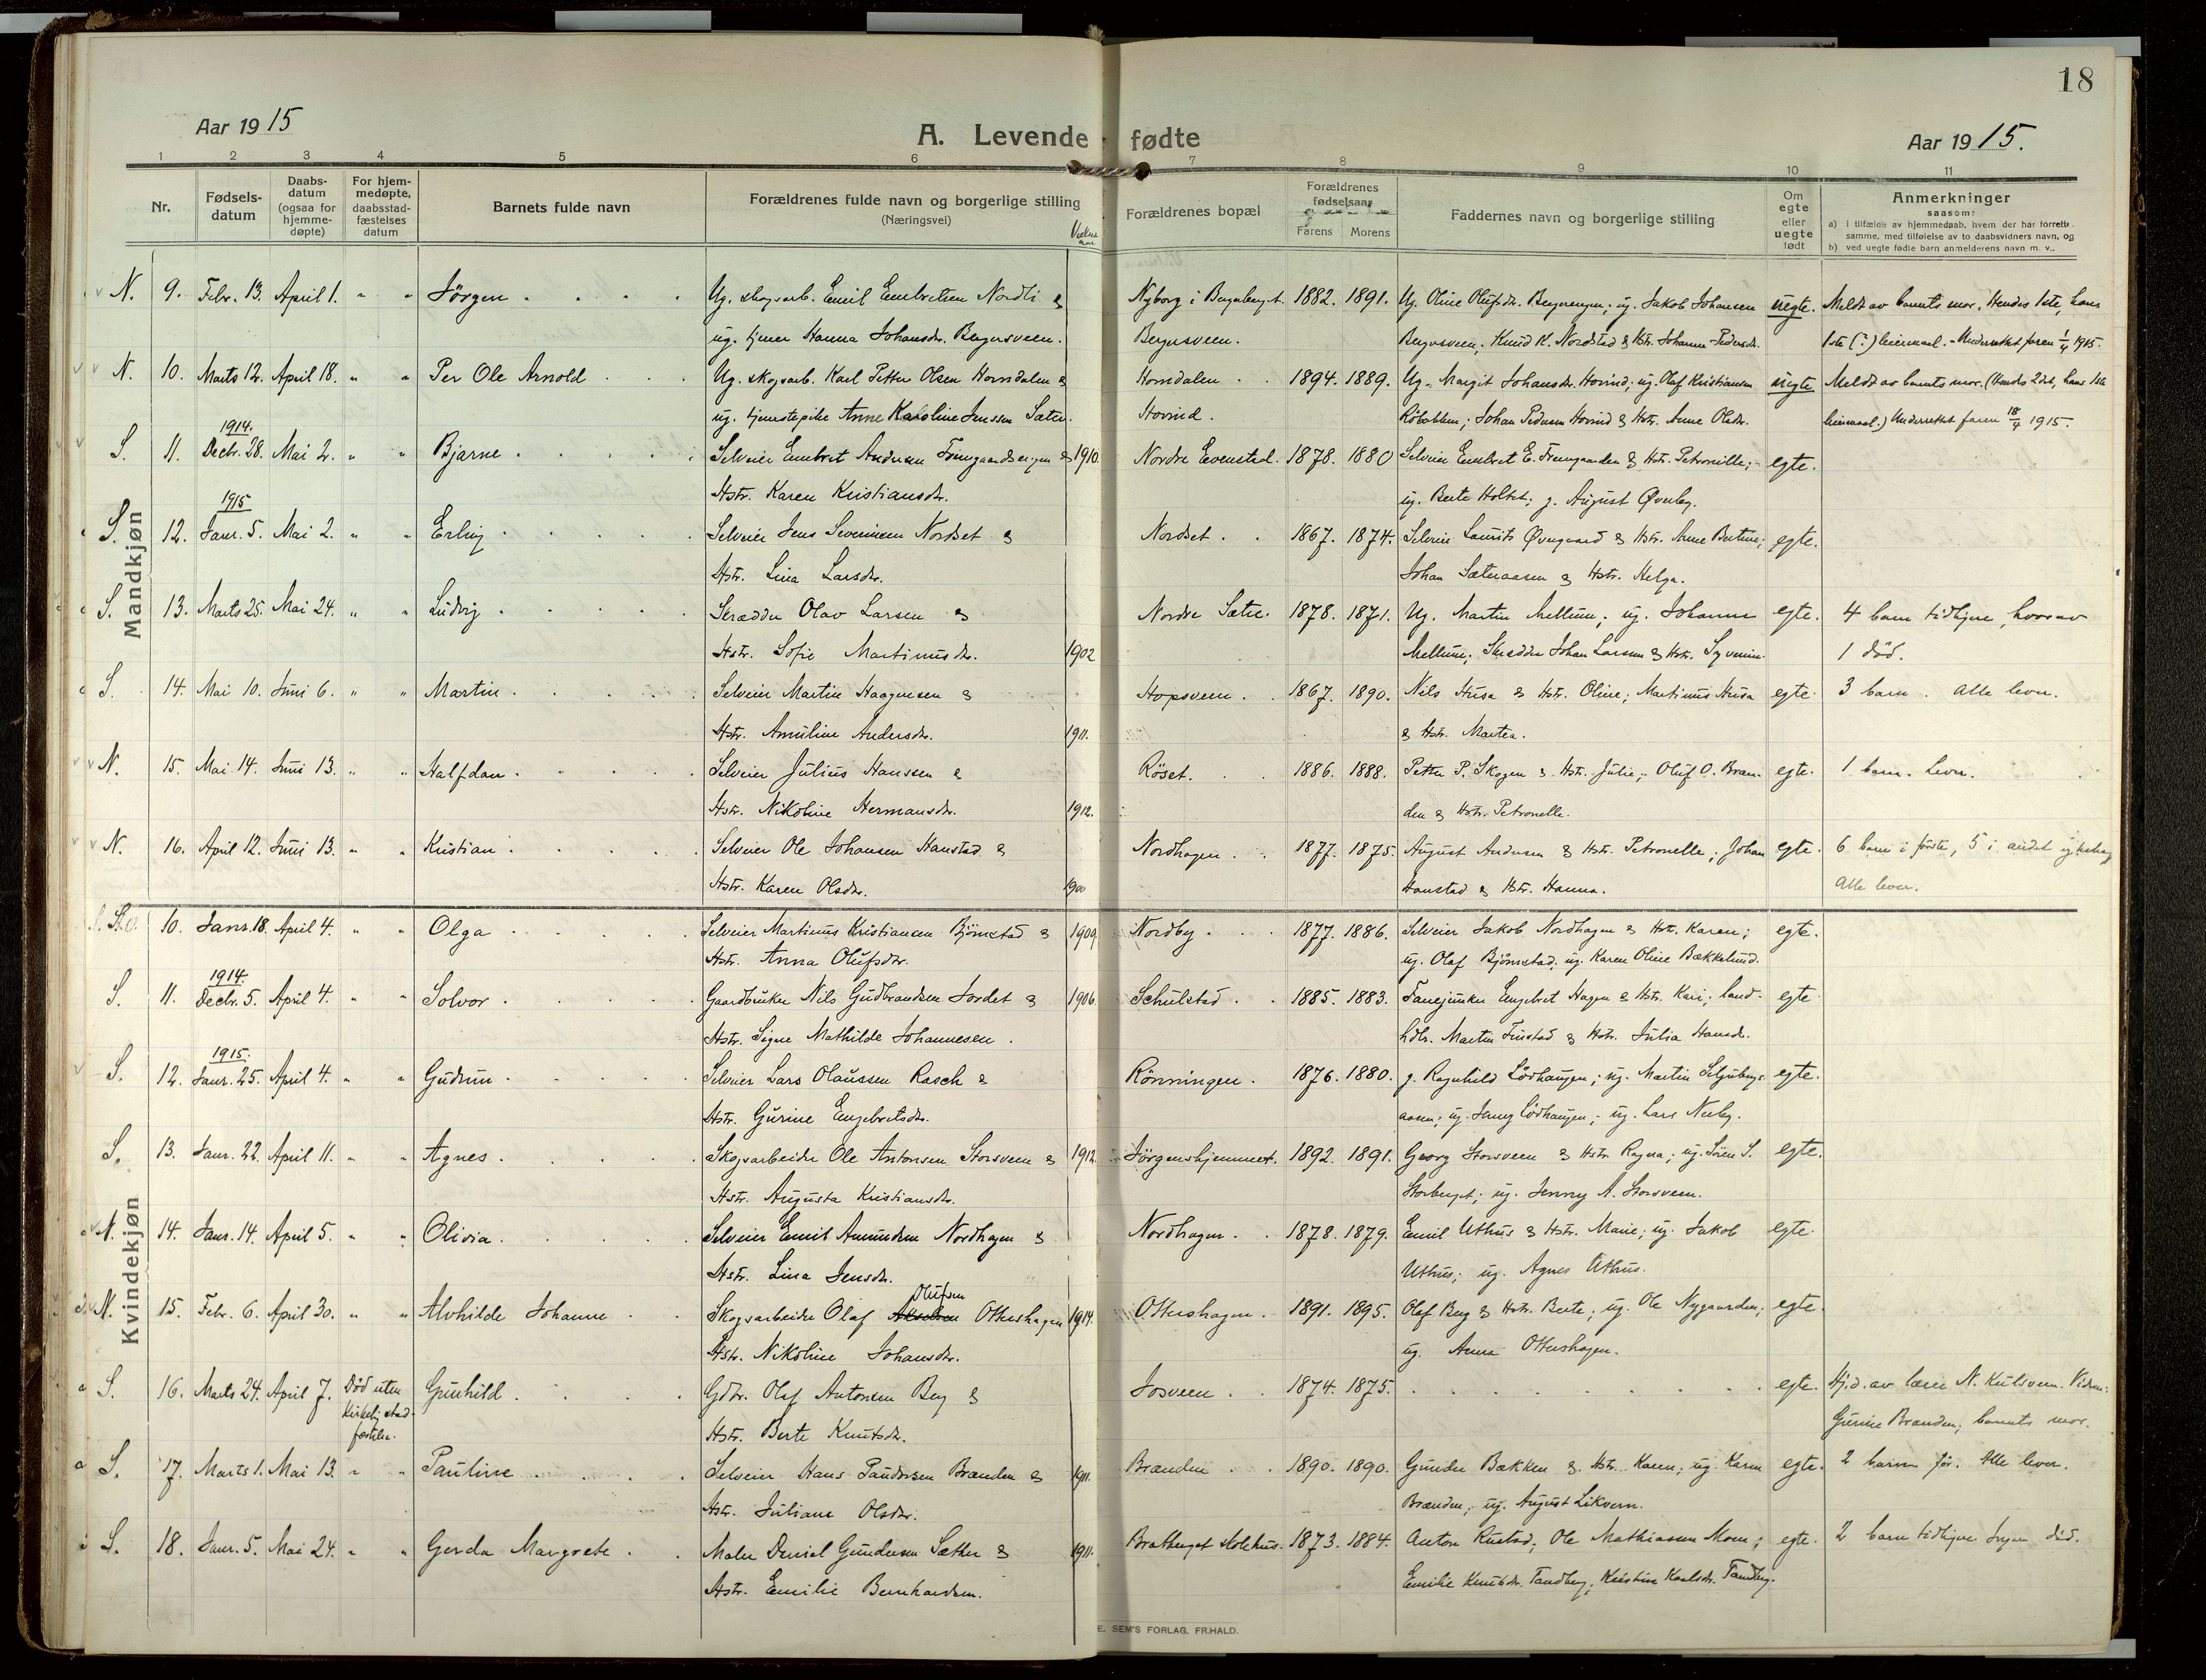 18
Aar 1915
A. Levende fødte
Aar 1915.
1 2 3 4 5 6 7 8 9 10 11
Nr.
Fødsels-datum
Daabs-datum (ogsaa for hjemme-døpte)
For hjem-medøpte, daabsstad-fæstelses datum
Barnets fulde navn
Forældrenes fulde navn og borgerlige stilling
(Næringsvei)
Forældrenes bopæl
Forældrenes fødselsaar
Farens Morens
Faddernes navn og borgerlige stilling
Om egte eller uegte født
Anmerkninger
saasom:
a) i tilfælde av hjemmedaab, hvem der har forrettet samme, med tilføielse av to daabsvidners navn, og
b) ved uegte fødte barn anmelderens navn m. v..
Mandkjøn
N. 9. Febr. 13. April 1. " " Jörgen Ug. skogsarb. Emil Embretsen Nordli & Nyborg i Bergeberget 1882. 1891. Ug. Oline Olufsdr. ug. Jakob Johansen uegte. Meldt av barnets mor. Hendes 1ste, hans
ug. tjener Hanna Johansdr. Bergersveen. Bergersveen. Bergersveen; Knud K. Nordstad & Hstr. Johanne Pedersdr. 1ste (?) leiermaal. - Underrettet faren 1/4 1915.
N. 10. Marts 12. April 18. " " Per Ole Arnold Ug. skogsarb. Karl Petter Olsen Horndalen & Horndalen 1894. 1889. Ug. Margit Johansdr. Hovind; ug. Olaf Kristiansen uegte Meldt av barnets mor. (Hendes 2det, hans 1ste
ug. tjenestepike Anne Karoline Jenssen Sæter. Hovind. Johan Pedersen Hovind & Hstr. Anne Olsdr. leiermaal.) Underrettet faren 18/4 1915.
S. 11. 1914. Decbr. 28. Mai 2. " " Bjarne Selveier Embret Andersen & 1910. Nordre Evenstad. 1878. 1880 Selveier Embret E. Fremgaarden & Hstr. Petronille; egte.
Hstr. Karen Kristiansdr. ug. Berte Holtet; g. August Øverby.
S. 12. 1915 Janr. 5. Mai 2. " " Erling Selveier Jens Severinsen Nordset & Nordset 1867. 1874. Selveier Laurits Øvergaard & Hstr. Anne Bertine; egte.
Hstr. Lina Larsdr. Johan Sæteraasen & Hstr. Helga.
S. 13. Marts 25. Mai 24. " " Ludvig Skrædder Olav Larsen & Nordre Sætre. 1878. 1871. Ug. Martin Mellum; ug. Johanne egte. 4 barn tidligere, hvorav
Hstr. Sofie Martinusdr. 1902 Mellum; Skrædder Johan Larsen & Hstr. Syverine. 1 död.
S. 14. Mai 10. Juni 6. " " Martin Selveier Martin Haagensen & Hopsveen. 1867. 1890. Nils Husa & Hstr. Oline; Martinus Husa egte. 3 barn. Alle lever.
Hstr. Amuline Andersdr. 1911. & Hstr. Martea.
N. 15. Mai 14. Juni 13. " " Halfdan Selveier Julius Hanssen & Röset. 1886. 1888. Petter P. Skogen & Hstr. Julie; Oluf O. Bræn- egte. 1 barn. Lever.
Hstr. Nikoline Hermansdr. 1912. den & Hstr. Petronelle.
N. 16. April 12. Juni 13. " " Kristian Selveier Ole Johansen Hanstad & Nordhagen 1877. 1875. August Andersen & Hstr. Petronelle; Johan egte. 6 barn i første, 5 i andet egteskap
Hstr. Karen Olsdr. 1900 Hanstad & Hstr. Hanna. Alle lever.
Kvindekjøn
10. Janr. 18. April 4. " " Olga Selveier Martinus Kristiansen Björnstad & 1909. Nordby 1877. 1886. Selveier Jakob Nordhagen & Hstr. Karen; egte.
Hstr. Anna Olufsdr. ug. Olaf Björnstad; ug. Karen Oline Bækkelund.
S. 11. 1914. Decbr. 5. April 4. " " Solvor Gaardbruker Nils Gudbrandsen Jordet & 1906. Schulstad 1885. 1883. Fanejunker Engebret Hagen & Hstr. Kari; land- egte.
Hstr. Signe Mathilde Johannesen. hdlr. Martin Finstad & Hstr. Julia Hansdr.
S. 12. 1915. Janr. 25. April 4. " " Gudrun Selveier Lars Olaussen Rasch & Rönningen. 1876. 1880. g. Ragnhild Lödhaugen; ug. Martin Seljebergs- egte.
Hstr. Gurine Engebretsdr. aasen; ug. Jenny Lödhaugen; ug. Lars Neeby.
S. 13. Janr. 22. April 11. " " Agnes Skogsarbeider Ole Antonsen Storsveen & 1912. Jörgenshjemmet. 1892. 1891. Georg Storsveen & Hstr. Ragna; ug. Sören S. egte.
Hstr. Augusta Kristiansdr. Storberget; ug. Jenny A. Storsveen.
N. 14. Janr. 14. April 5. " " Olivia Selveier Emil Amundsen Nordhagen & Nordhagen 1878. 1879. Emil Uthus & Hstr. Marie; ug. Jakob egte.
Hstr. Lina Jensdr. Uthus; ug. Agnes Uthus.
N. 15. Febr. 6. April 30. " " Alvhilde Johanne Skogsarbeider Olaf Olufsen Ottershagen 1914. Ottershagen. 1891. 1895. Olaf Berg & Hstr. Berte; ug. Ole Nygaarden; egte.
Hstr. Nikoline Johansdr. ug. Anna Ottershagen.
S. 16. Marts 24. April 7. Död uten kirkelig stadfæstelse. Gunhild Gdbr. Olaf Antonsen Berg & Josveen 1874. 1875. egte. Hj.d. av lærer N. Kulsveen. Vidner:
Hstr. Berte Knutsdr. Gurine Brænden, barnets mor.
S. 17. Marts 1. Mai 13. " " Pauline Selveier Hans Paudersen Brænden & 1911. Brænden 1890. 1890. Gunder Bækken & Hstr. Karen; ug. Karen egte. 2 barn før. Alle lever.
Hstr. Juliane Olsdr. Brænden; ug. August Likvern.
S. 18. Janr. 5. Mai 24. " " Gerda Margrete Maler Daniel Gundersen Sæther & 1911. Bratberget skolehus. 1873. 1884. Anton Rustad; Ole Mathiasen Moen; egte. 2 barn tidligere. Ingen död.
Hstr. Emilie Bernhardsen. Emilie Knutsdr. Tandberg; Kristine Karlsdr. Tandberg.
E. SEM'S FORLAG, FR.HALD.